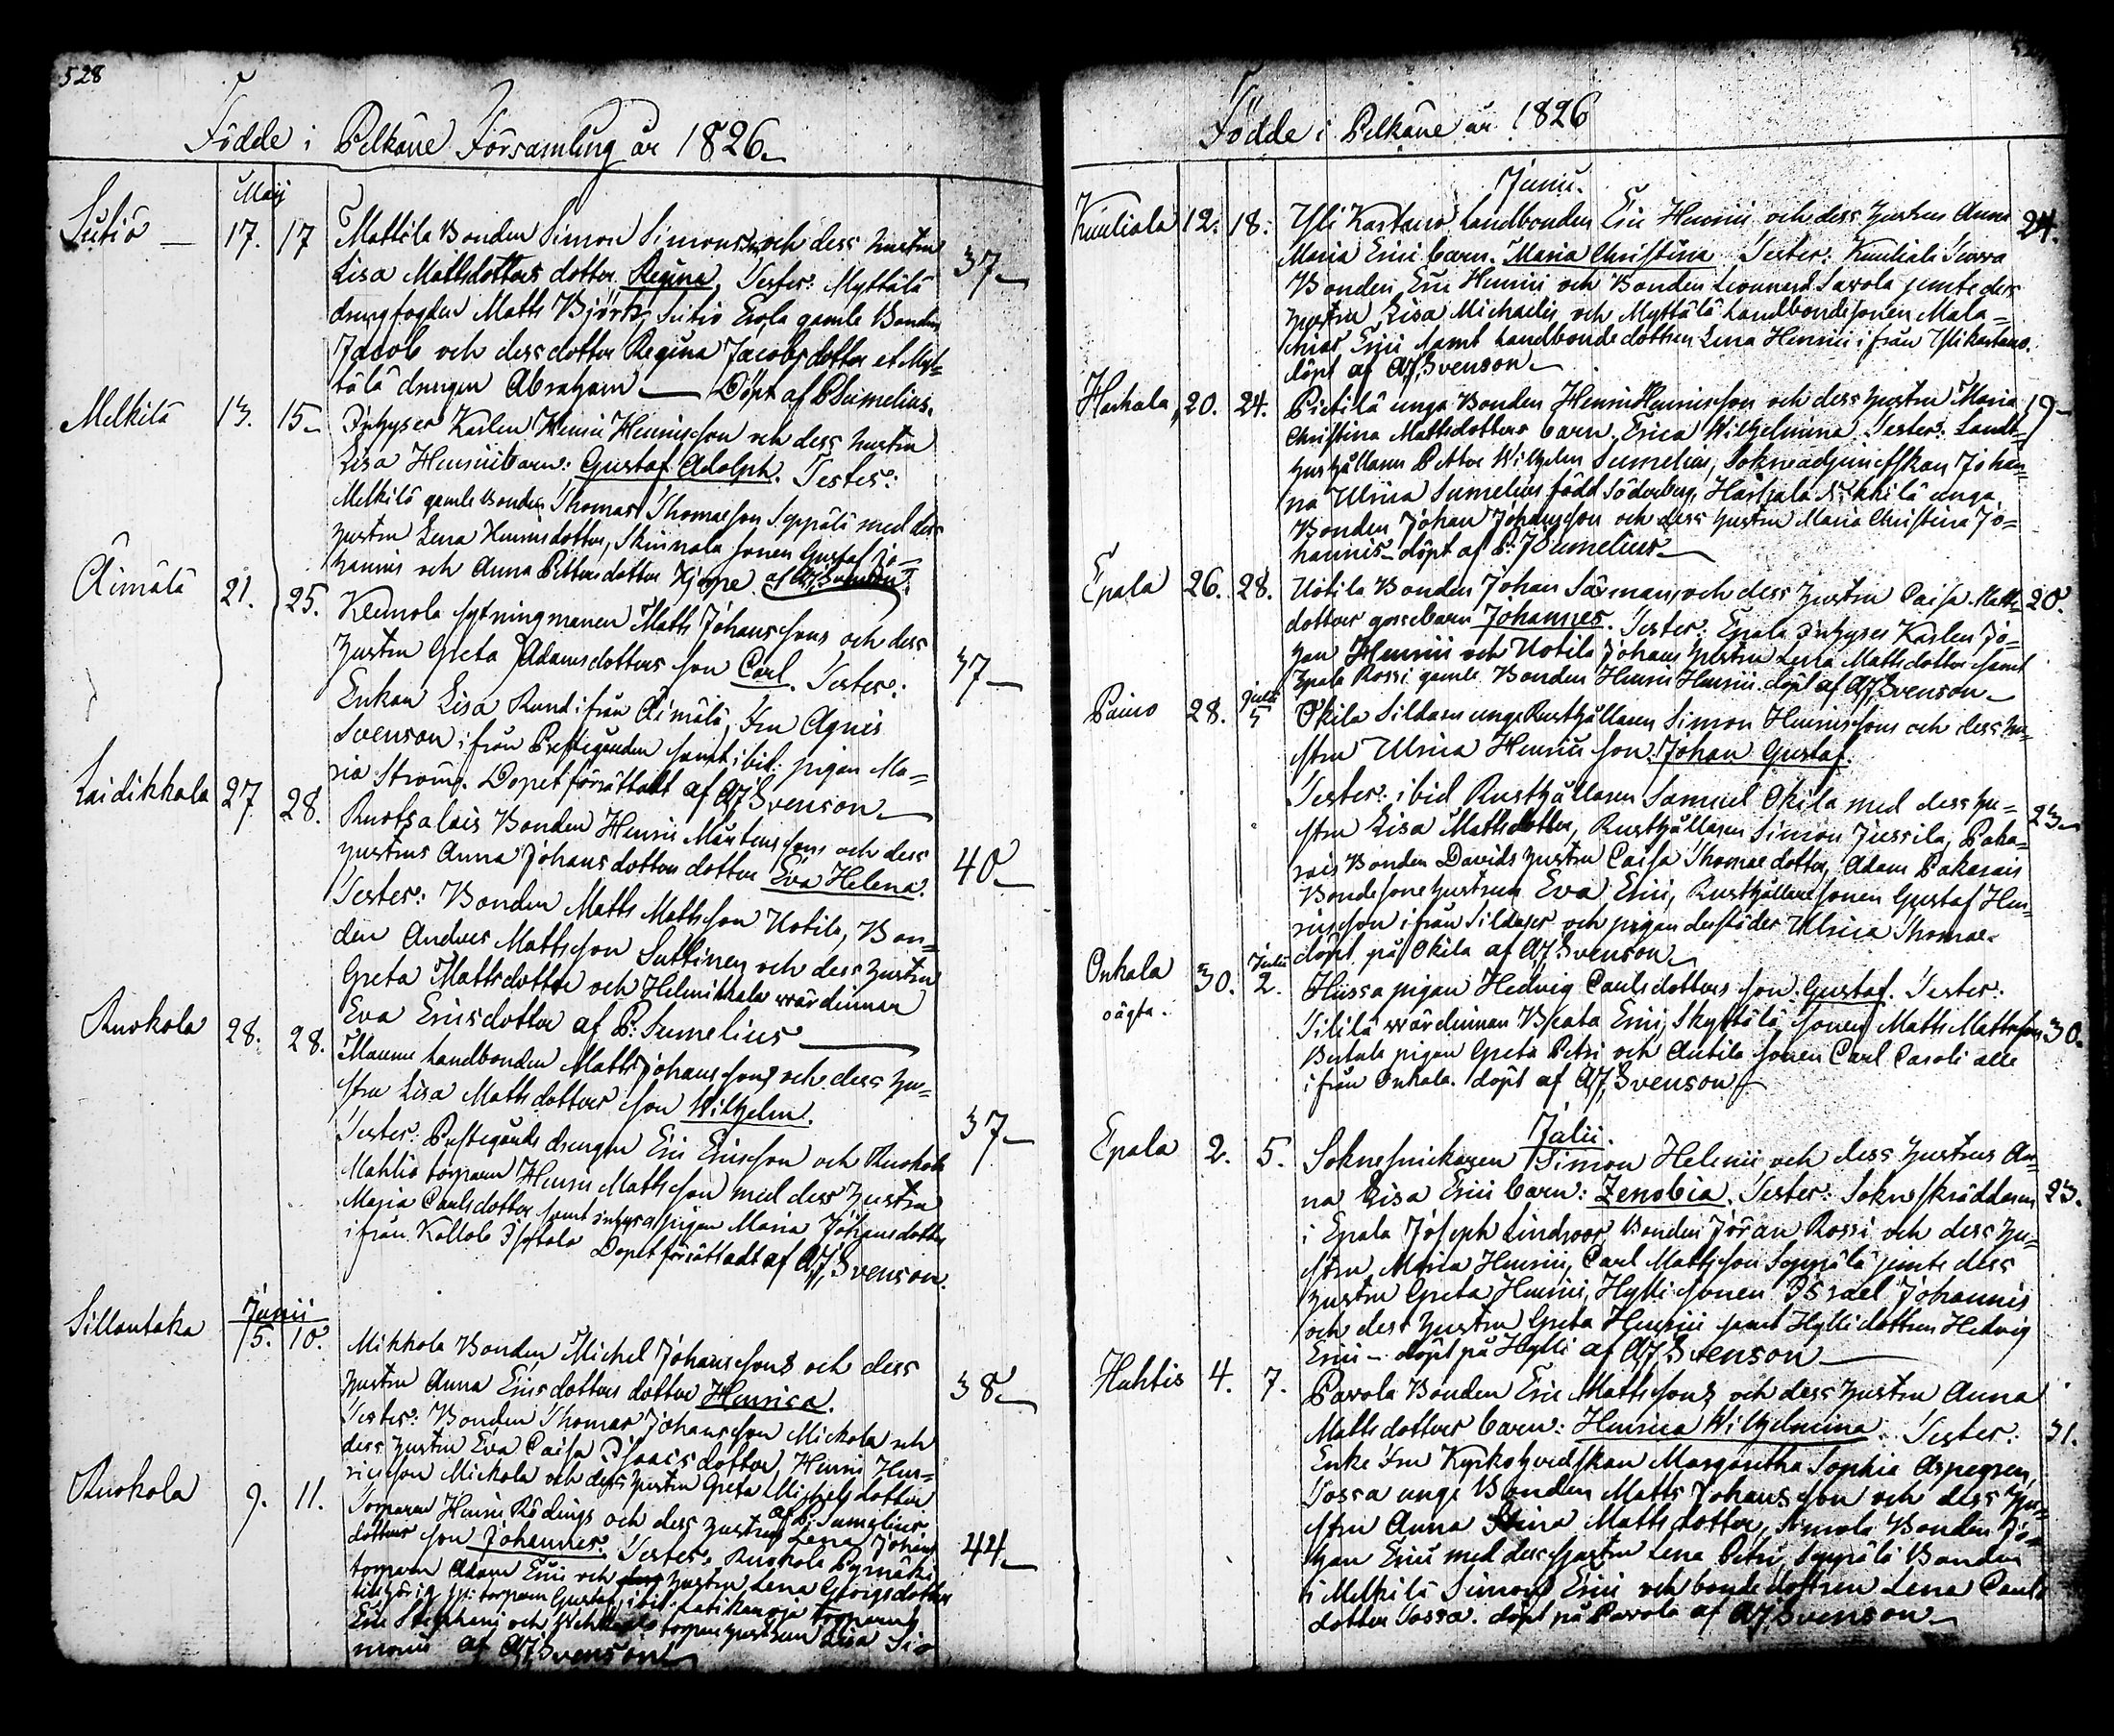 528
Födde i Pelkäne Församling år 1826.
Maij
Sutiö — 17. 17 Mattila Bonden Simon Simonsson och dess hustru 37—
Lisa Mattsdotters dotter Regina, Tester: Myttälä
drengfogden Matts Björk, Sutiö Erola gamle Bonden
Jacob och dess dotter Regina Jacobsdotter et Myt=
tälä drengen Abraham — Döpt af P. Sumelius.
Melkilä 13. 15— Inhyses Karlen Henric Henricsson och dess hustru
Lisa Henrici barn: Gustaf Adolph. Tester:
Melkilä gamle Bonden Thomas Thomasson Seppälä med dess
hustru Lena Henricsdotter, sonen Gustaf Jo=
hannis och Anna Pettersdotter af AJ Svenson.
Äimälä 21. 25. Klemola sytningmannen Matts Johanssons och dess
hustru Greta Adamsdotters son Carl. Tester: 37—
Enkan Lisa Rund ifrån Äimälä, Fru Agnes
Svenson ifrån Prestegården samt ibid: pigan Ma=
ria Ströng. Dopet förrättadt af AJ Svenson—
Laidikkala 27 28. Ruotsalais Bonden Henric Mårtenssons och dess
hustrus Anna Johansdotters dotter Eva Helena. 40—
Tester: Bonden Matts Mattsson Uotila, Bon=
den Anders Mattsson Suttinen och dess hustru
Greta Mattsdotter och Helmikkala wärdinnan
Eva Ericsdotter af P. Sumelius—
Ruokola 28. 28. Maunu landbonden Matts Johanssons och dess hu=
stru Lisa Mattsdotters son Wilhelm. 37—
Tester: Prestegårds drengen Eric Ericsson och Ruokola
Mahlio torparen Henric Mattsson med dess hustru
Maja Carlsdotter samt inhyses pigan Maria Johansdotter
ifrån Dopet förrättadt af AJ Svenson.
Junii
Sillantaka 5. 10. Mikkola Bonden Michel Johanssons och dess
hustru Anna Ericsdotters dotter Henrica. 38—
Tester: Bonden Thomas Johansson Mickola och
dess hustru Eva Caisa Isaacsdotter, Henric Hen=
ricsson Mickola och dess hustru Greta Michelsdotter
af P. Sumelius
Ruokola 9. 11. Torparen Henric Rödings och dess hustrus Lena Johans
dotters son Johannes. Tester: Ruokola Pyrnäki 44—
torparen Adam Eric och hustru Lena Georgsdotter
torparen Gustaf, ibid. torparen
Eric Stephani och torparehustrun Lisa Si=
monis af AJ Svenson
Födde i Pelkäne år 1826
Junii.
Kuuliala 12. 18. Yli Kartano landbonden Eric Henrici och dess hustrus Anna 24.
Maria Erici barn. Maria Christina Tester: Kuuliala Tiorra
Bonden Eric Henrici och Bonden Leonnerd Sarola jemte dess
hustru Lisa Michaelis, och Myttälä landbondesonen Mala=
chias Erici samt landbonde dottren Lena Henrici ifrån Ylikartano.
döpt af AJ Svenson—
Harhala 20. 24. Pietilä unga Bonden Henric Henricsson och dess hustru Maria 19—
Christina Mattsdotters barn. Erica Wilhelmina Tester: Landt=
hushållaren Petter Wilhelm Sumelius, Sokneadjunctskan Johan=
na Ulrica Sumelius född Söderberg, Harhala Nikkilä unga
Bonden Johan Johansson och dess hustru Maria Christina Jo=
hannis— döpt af P. J Sumelius—
Epala 26. 28. Uotila Bonden Johan Särman, och dess hustru Caisa Matts= 20.
dotters gossebarn Johannes. Tester: Epala Inhyses Karlen Jo=
han Henrici och Uotila Johans hustru Lena Mattsdotter samt
Epala Rossi gamle Bonden Henric Henrici. döpt af AJ Svenson—
Julii
Painio 28. 5 Okila Sildasen unga Rusthållaren Simon Henricssons och dess hu=
stru Ulrica Henrici son: Johan Gustaf.
Tester: ibid Rusthållaren Samuel Okila med dess hu= 23—
stru Lisa Mattsdotter, Rusthållaren Simon Jussila, Paka=
rais Bonden Davids hustru Caisa Thomae dotter, Adam Pakarais
Bondesone hustrun Eva Erici, Rusthållaresonen Gustaf Hen=
ricsson ifrån Sildaser och pigan dersädes Ulrica Thomae.
döpt på Okila af AJ Svenson—
Julii
Onkala 30. 2. Hussa pigan Hedvig Carlsdotters son. Gustaf. Tester:
oägta. Tililä wärdinnan Beata Erici, Skyttälä sonen Matts Mattsson 30.
Bertala pigan Greta Petri och Antila sonen Carl Caroli alle
ifrån Onkala. döpt af AJ Svenson—
Julii.
Epala 2. 5. Soknesnickaren Simon Helenii och dess hustrus An=
na Lisa Erici barn: Zenobia. Tester: Sokneskräddaren 23.
i Epala Joseph Lindroos, Bonden Jöran Rossi och dess hu=
stru Maria Henrici, Carl Mattsson Seppälä jemte dess
hustru Greta Henrici, Hylli sonen Israel Johannis
och dess hustru Greta Henrici samt Hylli dottren Hedvig
Erici — döpt på Hylli af AJ Svenson—
Huhtis 4. 7. Pavola Bonden Eric Mattssons och dess hustru Anna
Mattsdotters barn: Henrica Wilhelmina. Tester: 31.
Enke Fru Kyrkoherdskan Margaretha Sophia Aspegren,
Tossa unge Bonden Matts Johansson och dess hu=
stru Anna Stina Mattsdotter, Simola Bonden Jo=
han Erici med dess hustru Lena Petri, Seppälä Bonden
i Melkilä Simon Erici och bonde dottren Lena Carls
dotter Tossa. döpt på Pavola af AJ Svenson—